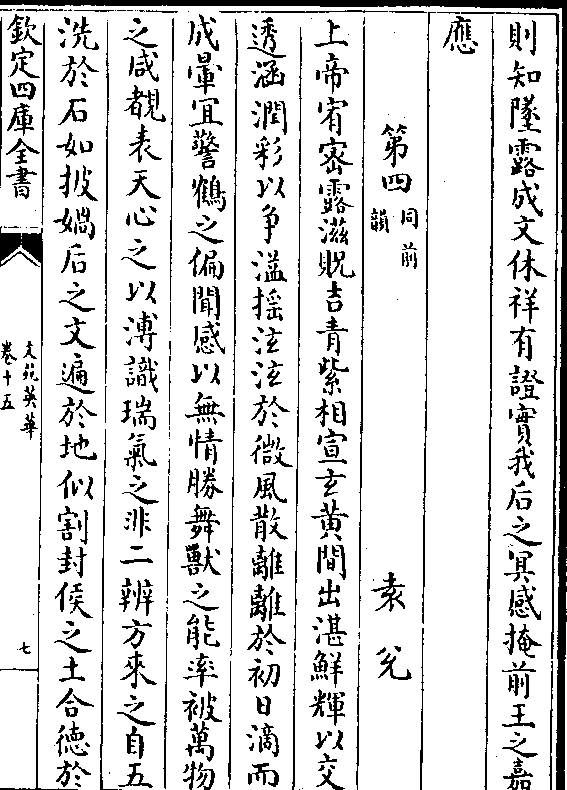 則知墜露成文休祥有證實我后之冥感掩前王之嘉
應
第四同前韻
袁兊
上帝宥宻露滋貺吉青紫相宣玄黃間出湛鮮輝以交
透涵潤彩以争溢揺泫泫於微風散離離於初日滴而
成暈冝警鶴之偏聞感以無情勝舞獸之能率被萬物
之咸覩表天心之以溥識瑞氣之非二辨方來之自五
洗於石如披媧后之文遍於地似割封侯之土合德於
欽定四庫全書
文苑英華
卷十五
七